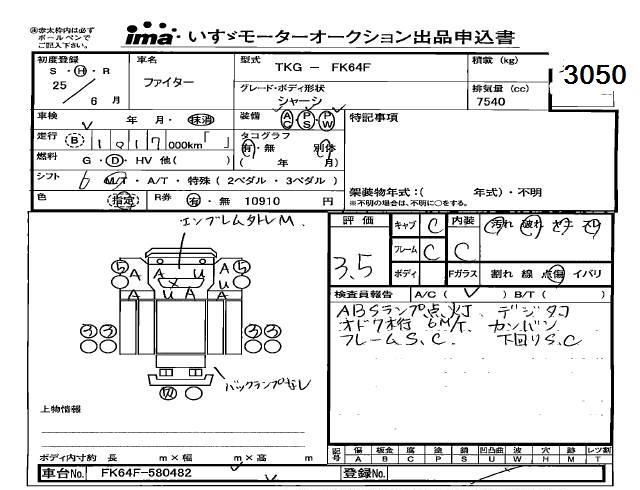 ※赤太枠内は必ず
ボールペンで
ご記入下さい。
ima・いすゞモーターオークション出品申込書
3050
初度登録
S・H・R
25
6 月
車名
ファイター
型式
TKG － FK64F
グレード・ボディ形状
シャーシ
積載 (kg)
排気量 (cc)
7540
車検 年 月・抹消
装備 AC PS PW
特記事項
走行 B 1 9 1 7 000km「 」
タコグラフ
有・無 別体
( 年 月)
燃料 G・D・HV 他( )
シフト 6 M/T・A/T・特殊 ( 2ペダル・3ペダル )
色 (指定) R券 有・無 10910 円
架装物年式:( 年式)・不明
※不明の場合は、不明に○をする。
エンブレム外レM.
評価
3.5
キャブ C
フレーム C
ボディ
内装 C
Fガラス
汚れ 破れ
割れ 線 点傷 イバリ
検査員報告 A/C ( ) B/T ( )
ABSランプ点灯、デジタコ
オドフ木行 6M/T. カンバン
フレームS.C. 下回りS.C
5 A A U A 5
A U A
3 3 3 3
バックランプなし
上物情報
ボディ内寸約 長 m×幅 m×高 m
記号 傷 板金 腐 塗 錆 凹凸曲 波 穴 跡 レンズ割
A B C P S U W H M T
車台No. FK64F-580482
登録No.